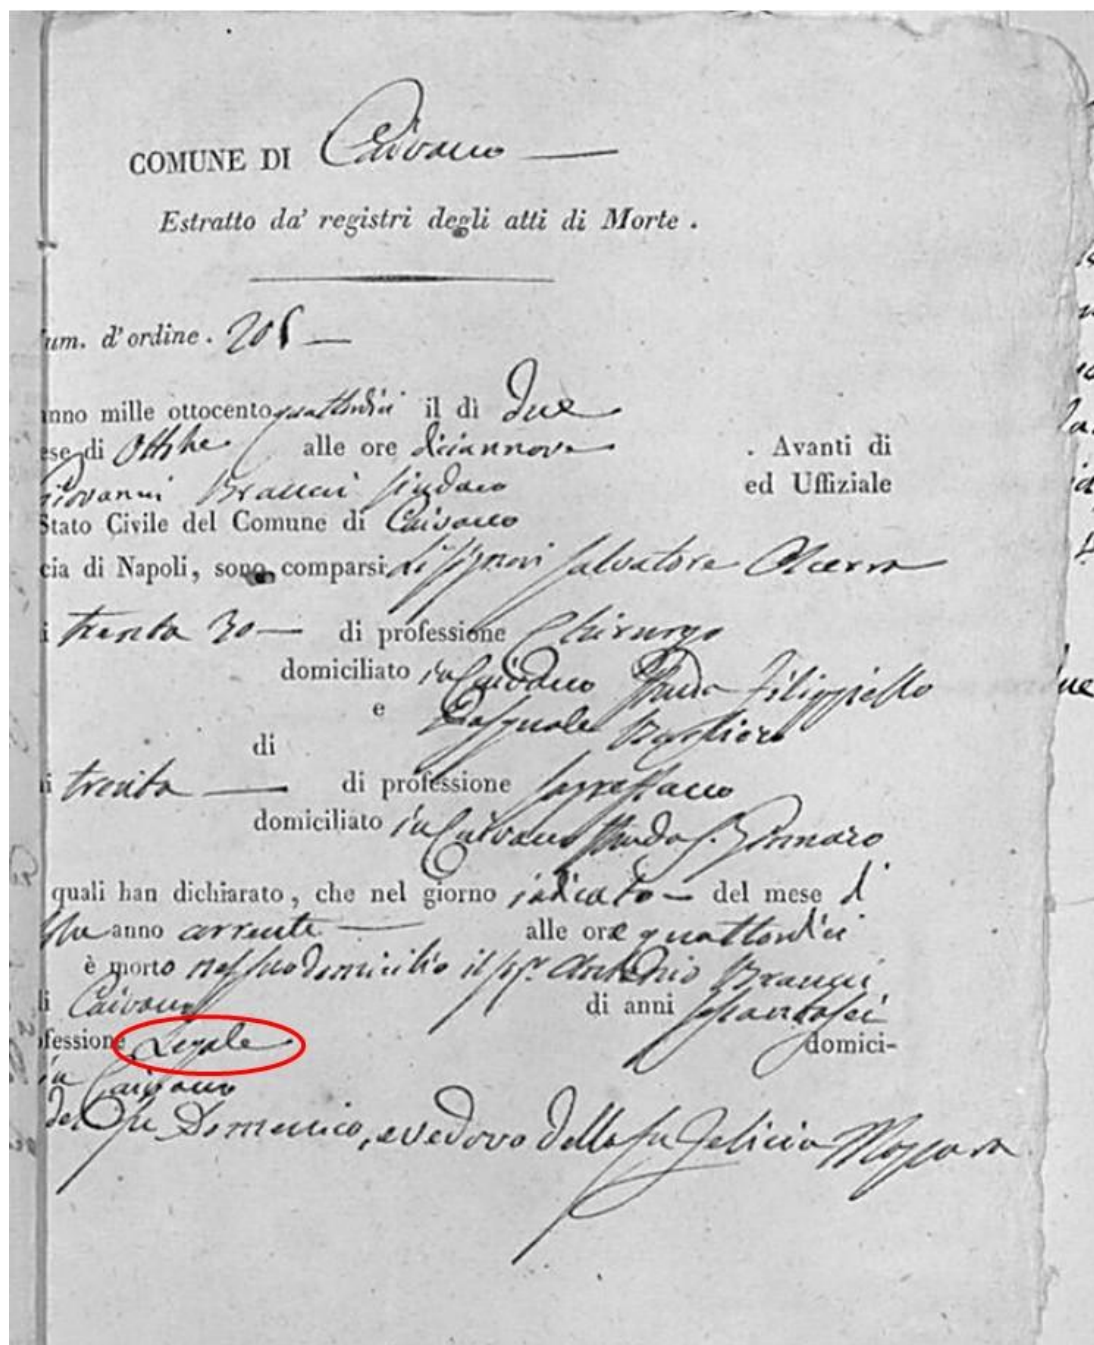 COMUNE DI Caivano
Estratto da' registri degli atti di Morte.
um. d'ordine. 205
nno mille ottocento quattordici il dì due
ese di Ottbre alle ore diciannove . Avanti di
Giovanni Braucci Sindaco ed Uffiziale
Stato Civile del Comune di Caivano
cia di Napoli, sono comparsi li Signori Salvatore Acerra
i trenta 30 di professione Chirurgo
domiciliato in Caivano Strada Filippiello
e Pasquale
di
i trenta di professione
domiciliato in Caivano Strada S. Gennaro
quali han dichiarato, che nel giorno indicato del mese di
anno corrente alle ore quattordici
è morto nel suo domicilio il Sigr. Antonio Braucci
di Caivano di anni sessantasei
fessione Legale domici-
in Caivano
del fu Domenico, e vedovo della fu Felicia